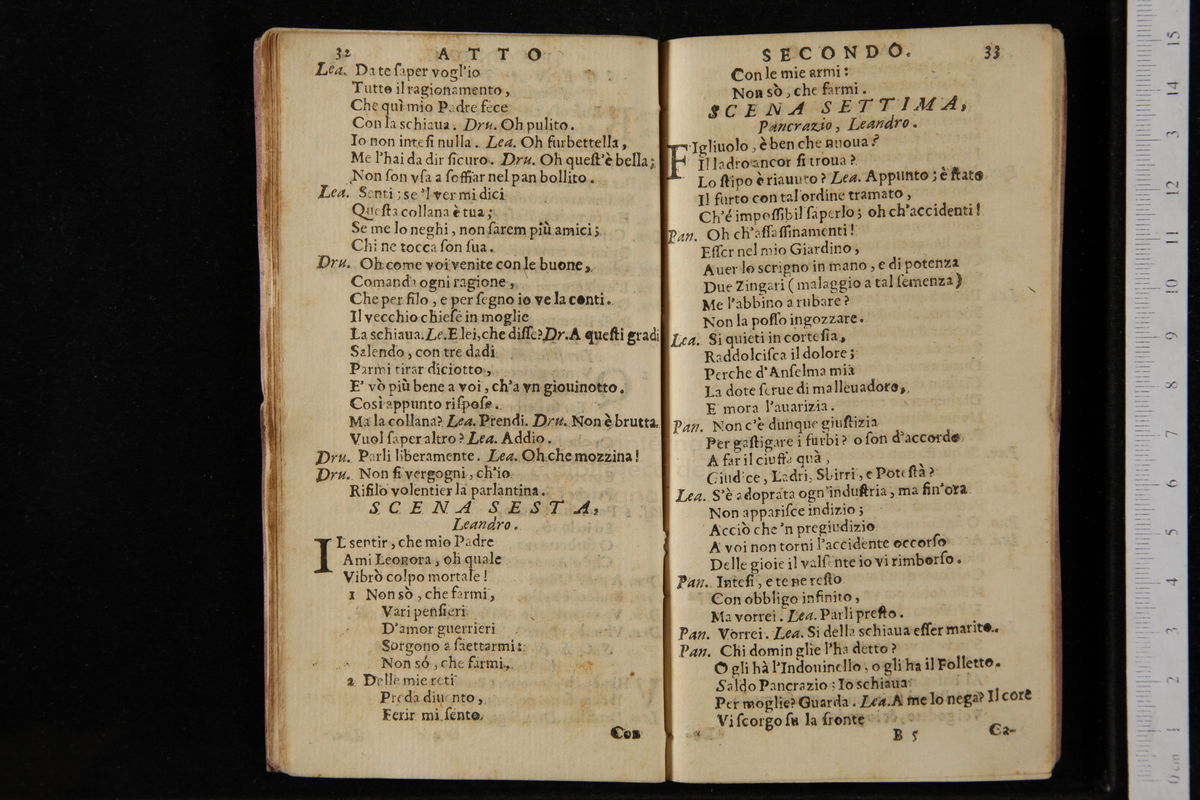 32 ATTO
Lea. Da te ſaper vogl'io
Tutto il ragionamento,
Che quì mio Padre fece
Con la schiaua. Dru. Oh pulito.
Io non inteſi nulla. Lea. Oh furbettella,
Me l'hai da dir ſicuro. Dru. Oh queſt'è bella;
Non ſon vſa a ſoffiar nel pan bollito.
Lea. Senti; se 'l ver mi dici
Queſta collana è tua;
Se me lo neghi, non farem più amici;
Chi ne tocca ſon ſua.
Dru. Oh come voi venite con le buone,
Comanda ogni ragione,
Che per filo, e per ſegno io ve la conti.
Il vecchio chieſe in moglie
La schiaua. Le. E lei, che diſſe? Dr. A queſti gradi
Salendo, con tre dadi
Parmi tirar diciotto,
E' vò più bene a voi, ch'a vn giouinotto.
Così appunto riſpoſe.
Ma la collana? Lea. Prendi. Dru. Non è brutta.
Vuol ſaper altro? Lea. Addio.
Dru. Parli liberamente. Lea. Oh che mozzina!
Dru. Non ſi vergogni, ch'io
Rifilo volentier la parlantina.
SCENA SESTA,
Leandro.
IL sentir, che mio Padre
Ami Leonora, oh quale
Vibrò colpo mortale!
1 Non sò, che farmi,
Vari penſieri
D'amor guerrieri
Sorgono a ſaettarmi:
Non só, che farmi,
2 Delle mie reti
Preda diuento,
Ferir mi ſento
Con
SECONDO. 33
Con le mie armi:
Non sò, che farmi.
SCENA SETTIMA,
Pancrazio, Leandro.
FIgliuolo, è ben che nuoua?
Il ladro ancor ſi troua?
Lo ſtipo è riauuto? Lea. Appunto; è ſtato
Il furto con tal'ordine tramato,
Ch'é impoſſibil ſaperlo; oh ch'accidenti!
Pan. Oh ch'aſſaſſinamenti!
Eſſer nel mio Giardino,
Auer lo scrigno in mano, e di potenza
Due Zingari (malaggio a tal ſemenza)
Me l'abbino a rubare?
Non la poſſo ingozzare.
Lea. Si quieti in corteſia,
Raddolciſca il dolore;
Perche d'Anſelma mia
La dote ſerue di malleuadore,
E mora l'auarizia.
Pan. Non c'è dunque giuſtizia
Per gaſtigare i furbi? o ſon d'accordo
A far il ciuffo quà,
Giudice, Ladri, Sbirri, e Poteſtà?
Lea. S'è adoprata ogn'induſtria, ma fin'ora
Non appariſce indizio;
Acciò che 'n pregiudizio
A voi non torni l'accidente occorſo
Delle gioie il valſente io vi rimborſo.
Pan. Inteſi, e te ne reſto
Con obbligo infinito,
Ma vorrei. Lea. Parli preſto.
Pan. Vorrei. Lea. Si della schiaua eſſer marito.
Pan. Chi domin glie l'ha detto?
O gli hà l'Indouinello, o gli ha il Folletto.
Saldo Pancrazio: Io schiaua
Per moglie? Guarda. Lea. A me lo nega? Il core
Vi ſcorgo ſu la fronte
B 5 Ca-